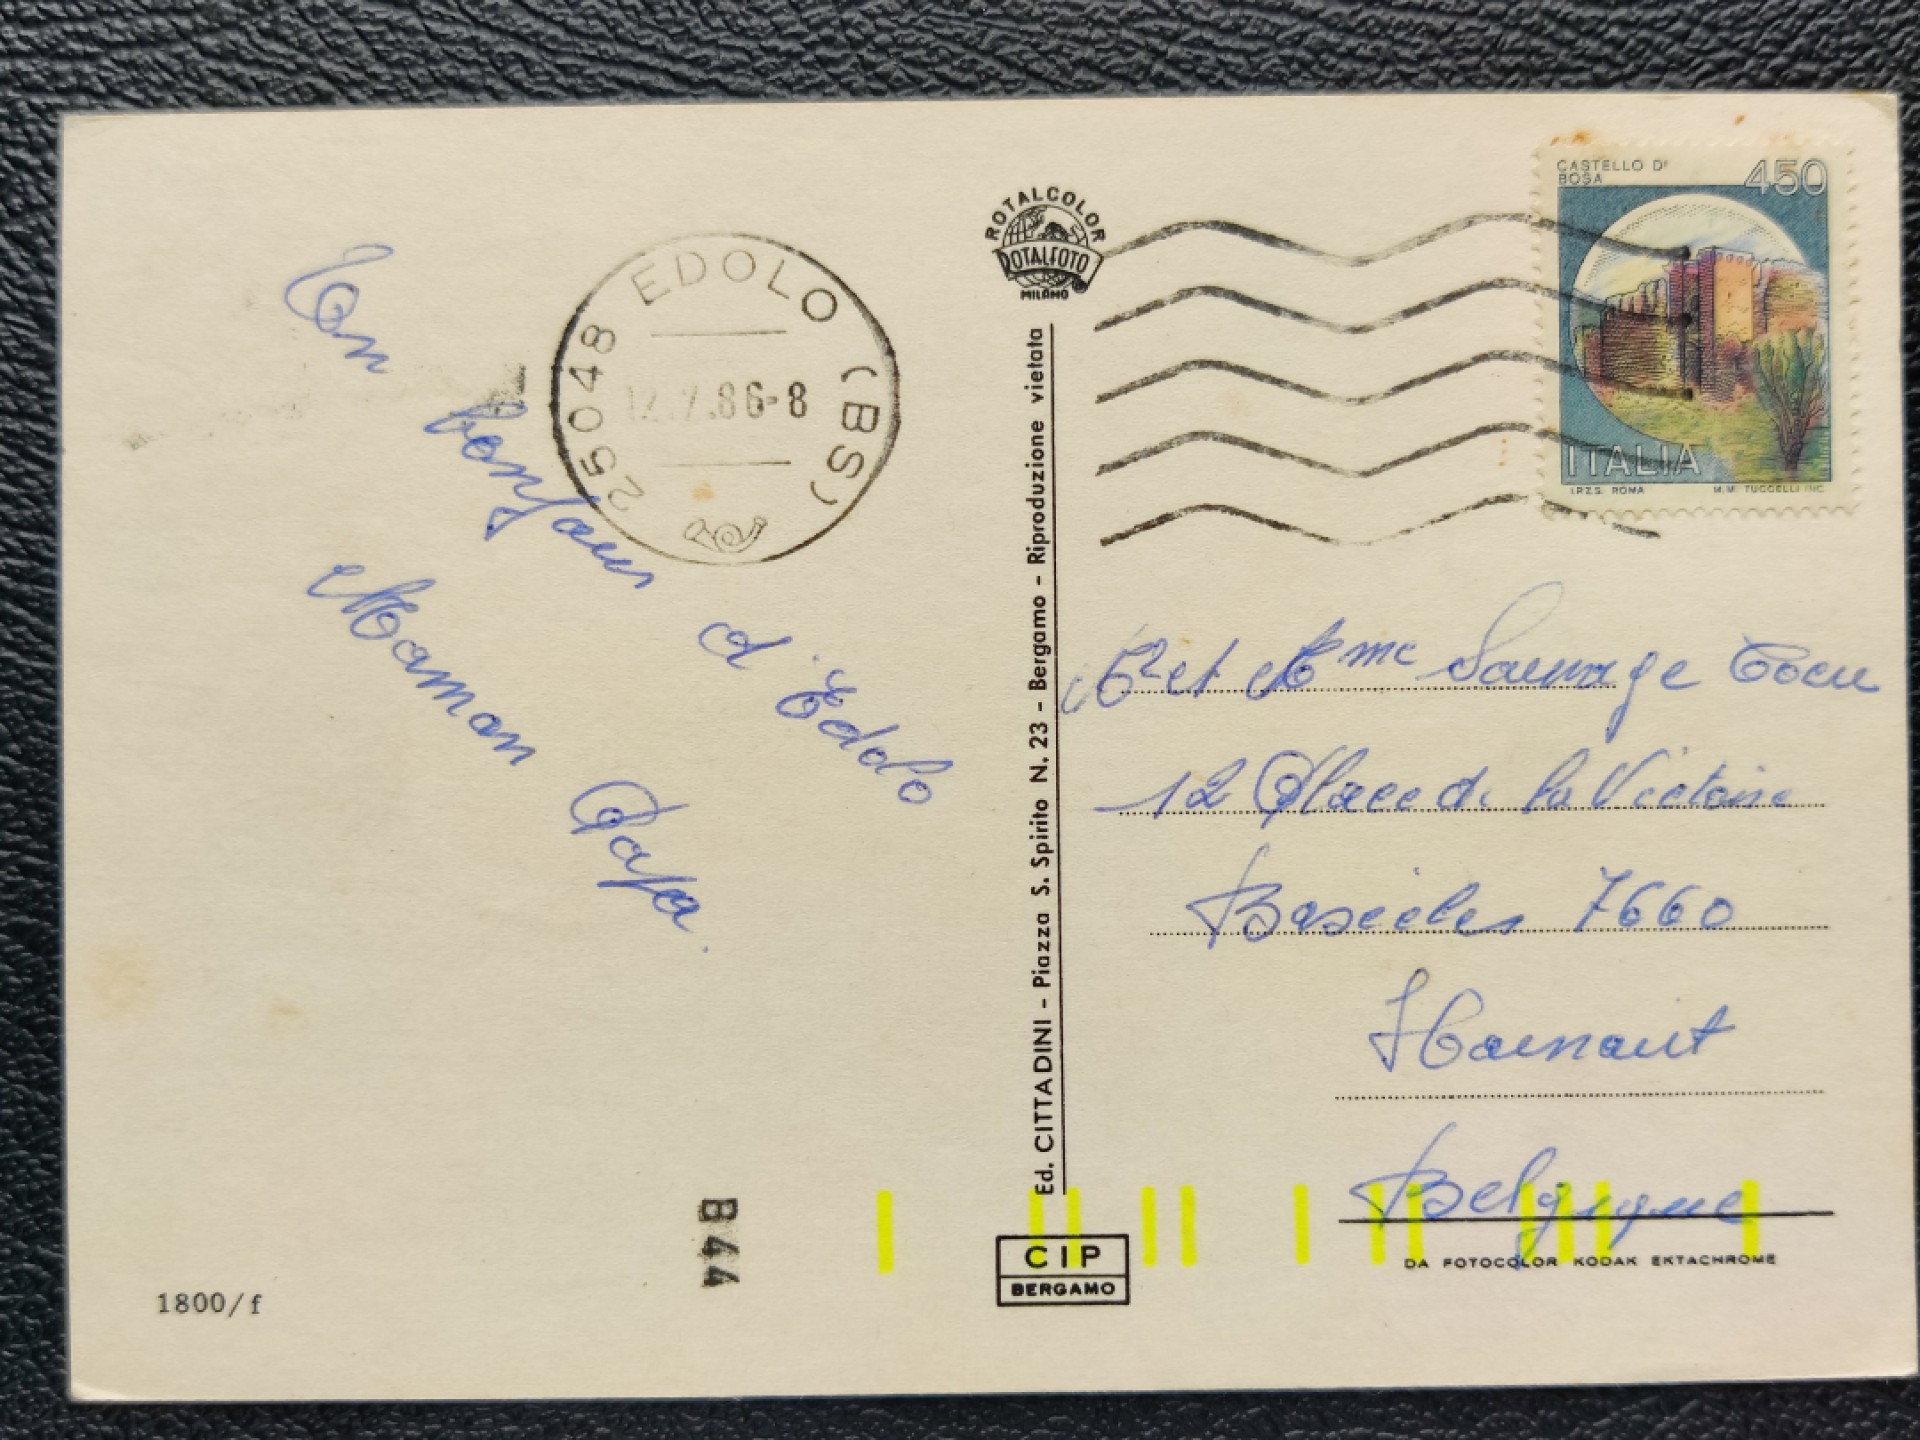 Un
bonjour
d'Edolo
Maman Papa.
25048 EDOLO (BS)
.7.86-8
ROTALCOLOR
ROTALFOTO
MILANO
CASTELLO DI
BOSA
450
ITALIA
I.P.Z.S. ROMA M.M. TUCCELLI INC.
Ed. CITTADINI - Piazza S. Spirito N. 23 - Bergamo - Riproduzione vietata
Mr et Mme Sauvage
12 Place de la Victoire
Basècles 7660
Hainaut
Belgique
DA FOTOCOLOR KODAK EKTACHROME
CIP
BERGAMO
B44
1800/f